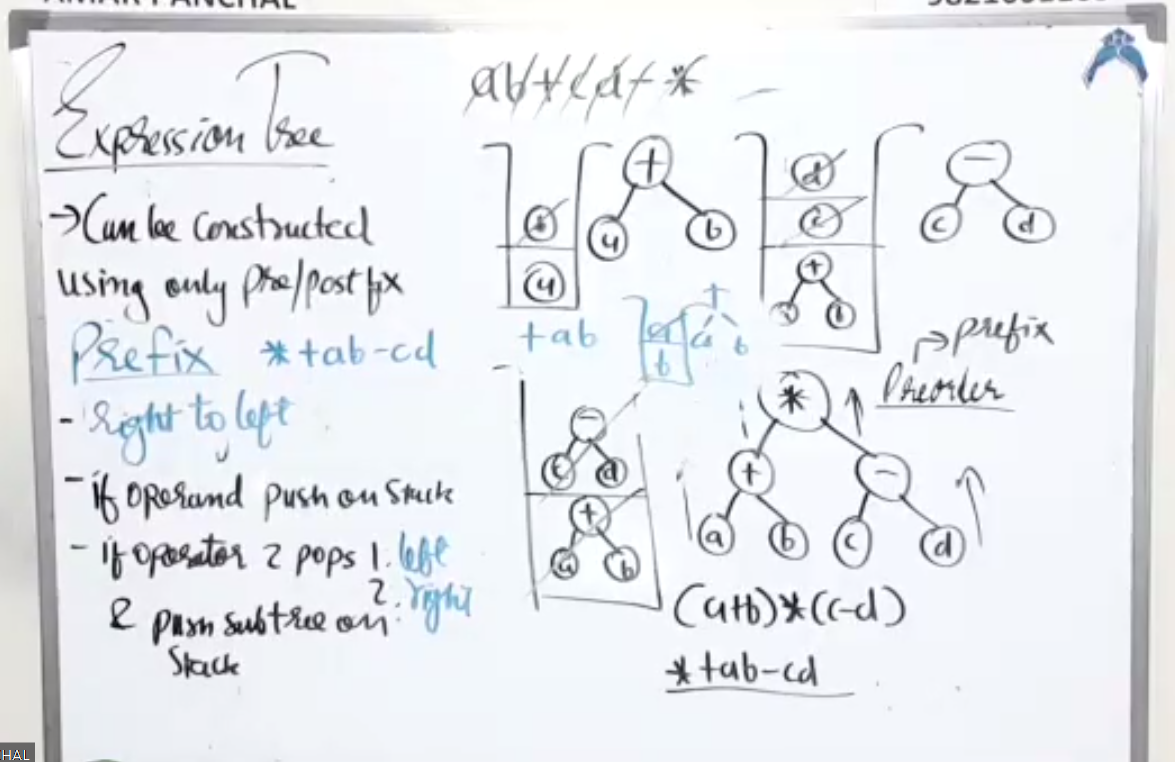 Expression Tree
→ Can be constructed
using only pre/postfix
Prefix *+ab-cd
- right to left
- if operand push on stack
- if operator 2 pops 1. left
2. right
& push subtree on
Stack
ab+cd-*
b
a
+
a b
d
c
+
b
-
c d
+ab
a
b
+
a b
→ prefix
Preorder
-
c d
+
a b
*
+ -
a b c d
(a+b)*(c-d)
*+ab-cd
HAL